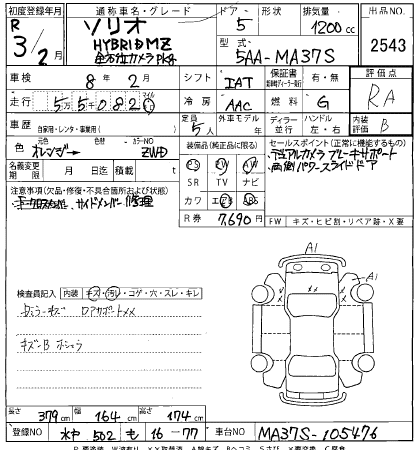 初度登録年月 通称車名・グレード ドア 形状 排気量 出品NO.
R 3/2月 ソリオ 5 1200cc 2543
HYBRID MZ
全方位カメラPkg 型式 5AA-MA37S
車検 8年2月 シフト IAT 保証書 有・無 評価点 RA
走行 5 5万 5千 0 8 2 冷房 AAC 燃料 G
車歴 自家用・レンタ・事業用( ) 定員 5人 外車モデル 年 ディーラー 並行 ハンドル 左・右 内装評価 B
元色 オレンジ 色替 カラーNO ZWD
名義変更期限 月 日迄 積載 t
装備品(純正品に限る) セールスポイント(正常に機能するもの)
PS PW AW ・デュアルカメラブレーキサポート
SR TV ナビ ・両側パワースライドドア
注意事項(欠品・修復・不具合箇所および状態)
サイドメンバー 修理
カワ エアB ABS
R券 7,690円 FW キズ・ヒビ割・リペア跡・X要
A1
A1
検査員記入 内装 キズ・汚レ・コゲ・穴・スレ・キレ
長さ 379cm 幅 164cm 高さ 174cm
登録NO 水戸 502 も 16-77 車台NO MA37S-105476